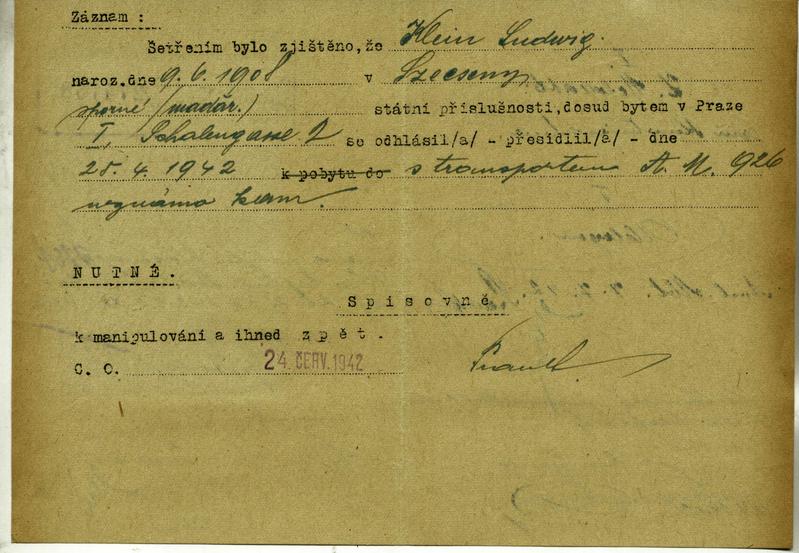 Záznam :
Šetřením bylo zjištěno, že Klein Ludwig.
naroz.dne 9.6.1908 v Szecseny,
sporné /maďar./ státní příslušnosti, dosud bytem v Praze
I, Schalengasse 2 se odhlásil/a/ - přesídlil/a/ - dne
28. 4. 1942 k pobytu do s transportem A. M. 926
neznámo kam.
NUTNÉ.
Spisovně
k manipulování a ihned zpět.
C. O. 24. ČERV. 1942